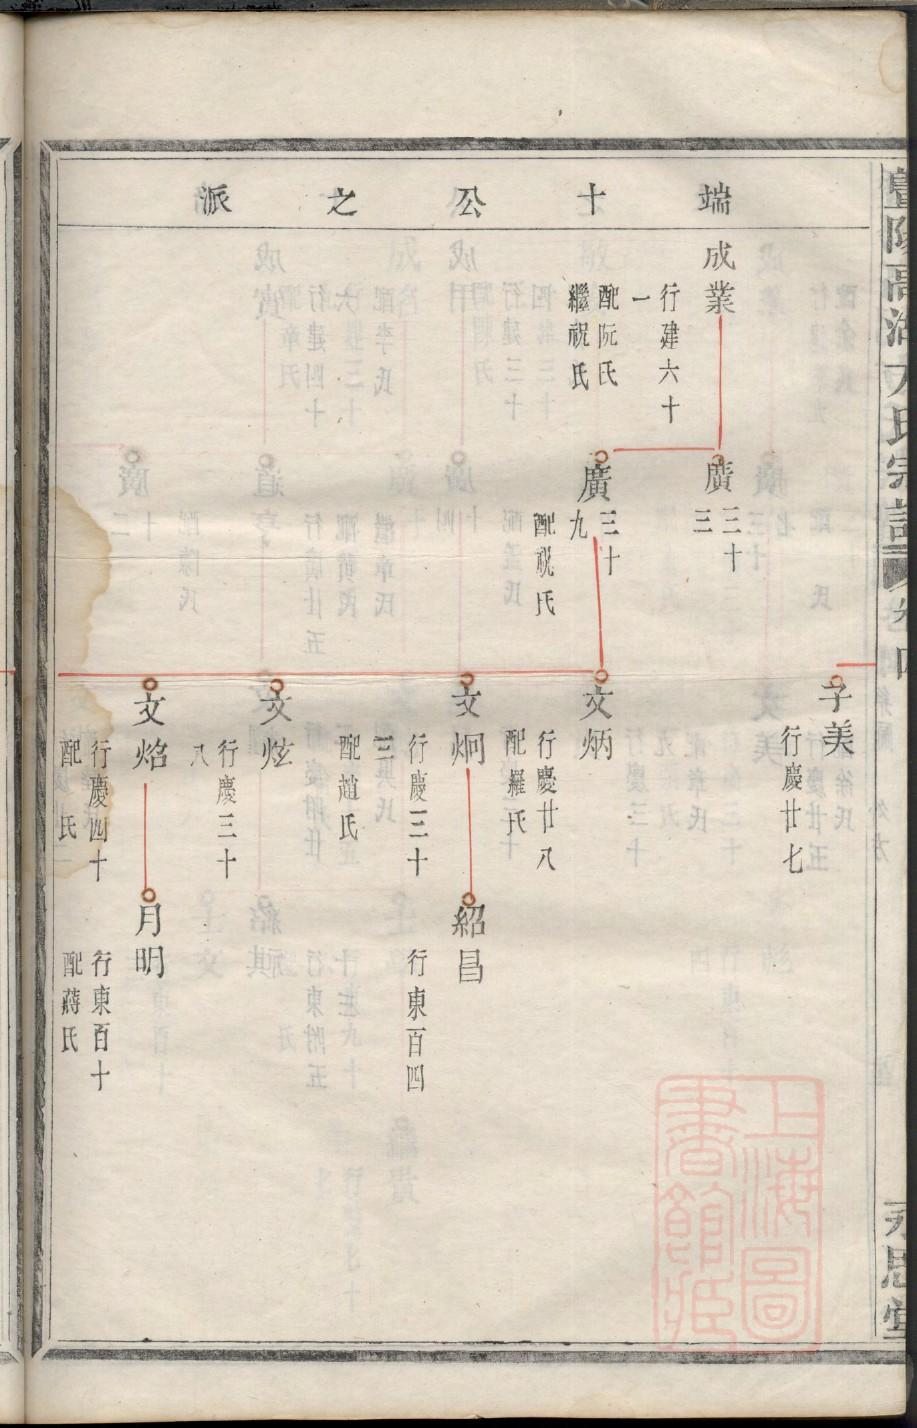 端十公之派
成業
行建六十
一
配阮氏
繼祝氏
廣三十
三
廣三十
九
配祝氏
子美
行慶廿七
文炳
行慶廿八
配羅氏
文炯
行慶三十
三
配趙氏
文炫
行慶三十
八
文焰
行慶四十
配 氏
紹昌
行東百四
月明
行東百十
配蔣氏
永思堂
上海圖
書館藏